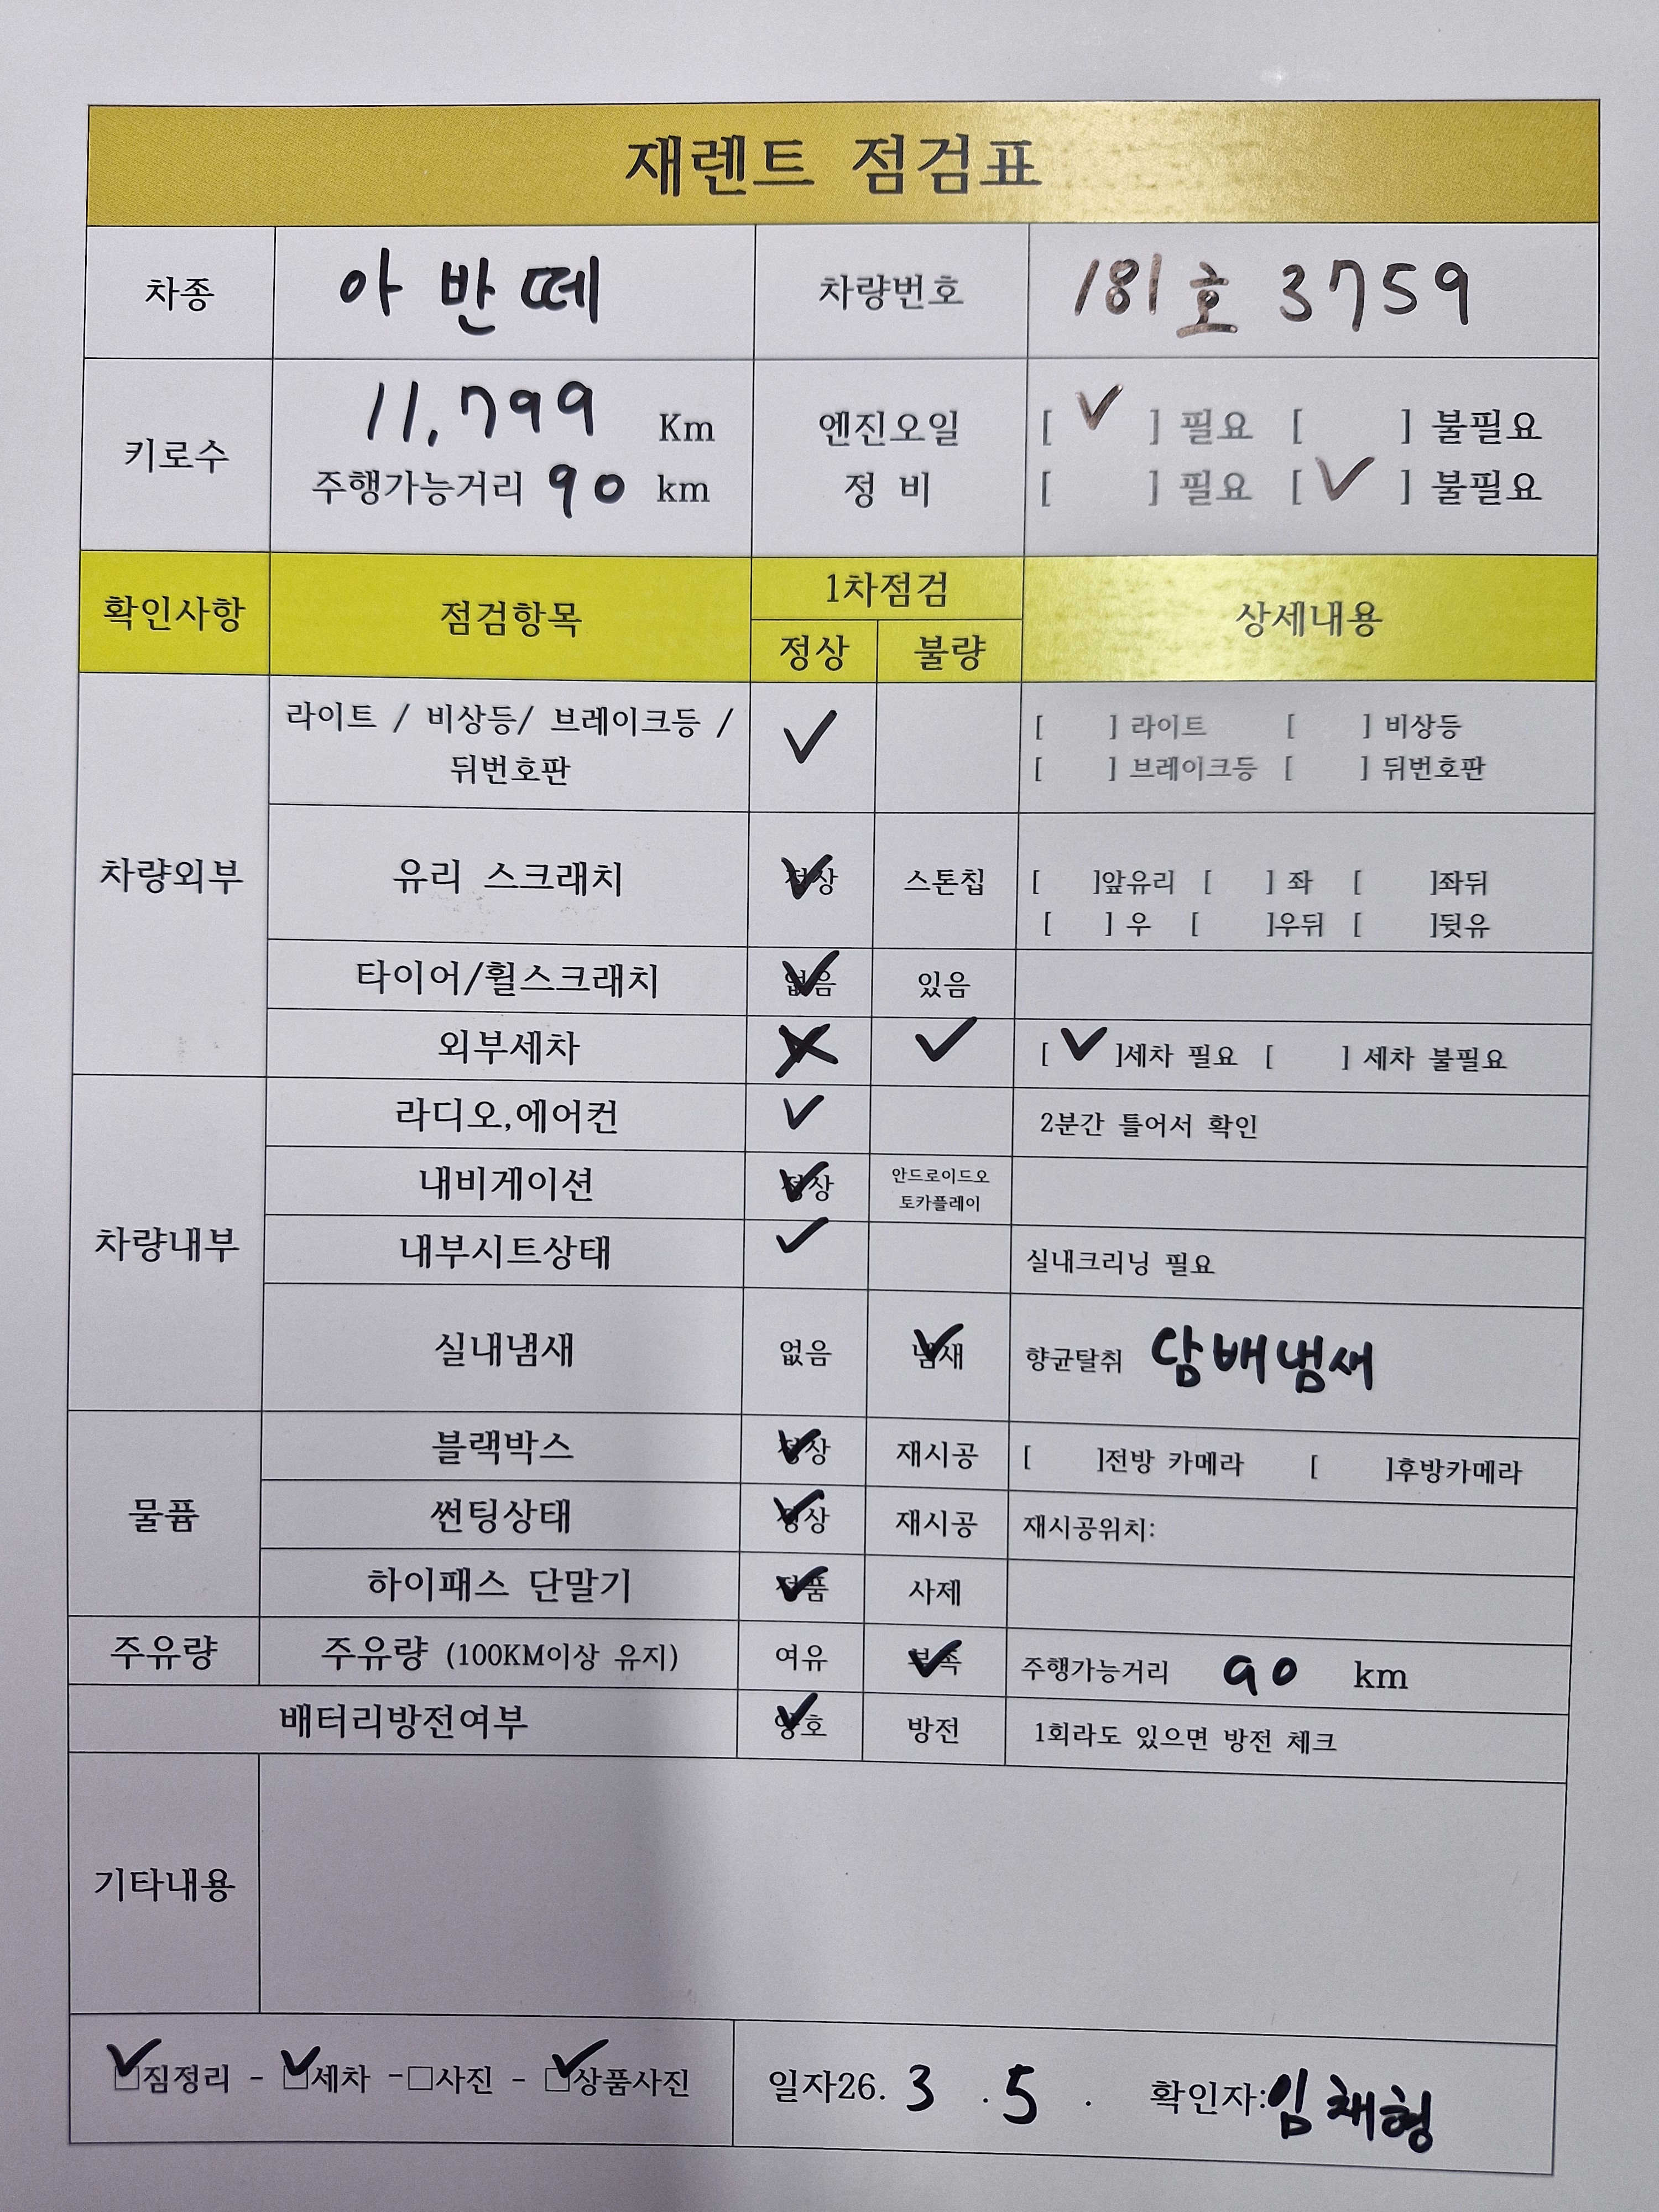 재렌트 점검표
차종 아반떼 차량번호 181호 3759
키로수 11,799 Km 엔진오일 [ ✓ ] 필요 [ ] 불필요
주행가능거리 90 km 정 비 [ ] 필요 [ ✓ ] 불필요
확인사항 점검항목 1차점검 상세내용
정상 불량
차량외부
라이트 / 비상등/ 브레이크등 / ✓ [ ] 라이트 [ ] 비상등
뒤번호판 [ ] 브레이크등 [ ] 뒤번호판
유리 스크래치 정상 ✓ 스톤칩 [ ]앞유리 [ ] 좌 [ ]좌뒤
[ ] 우 [ ]우뒤 [ ]뒷유
타이어/휠스크래치 없음 ✓ 있음
외부세차 ✓ [ ✓ ]세차 필요 [ ] 세차 불필요
차량내부
라디오,에어컨 ✓ 2분간 틀어서 확인
내비게이션 정상 ✓ 안드로이드오
토카플레이
내부시트상태 ✓ 실내크리닝 필요
실내냄새 없음 냄새 ✓ 향균탈취 담배냄새
물품
블랙박스 정상 ✓ 재시공 [ ]전방 카메라 [ ]후방카메라
썬팅상태 정상 ✓ 재시공 재시공위치:
하이패스 단말기 정품 ✓ 사제
주유량 주유량 (100KM이상 유지) 여유 부족 ✓ 주행가능거리 90 km
배터리방전여부 양호 ✓ 방전 1회라도 있으면 방전 체크
기타내용
☑짐정리 - ☑세차 -□사진 - ☑상품사진 일자26. 3 . 5 . 확인자:임채형